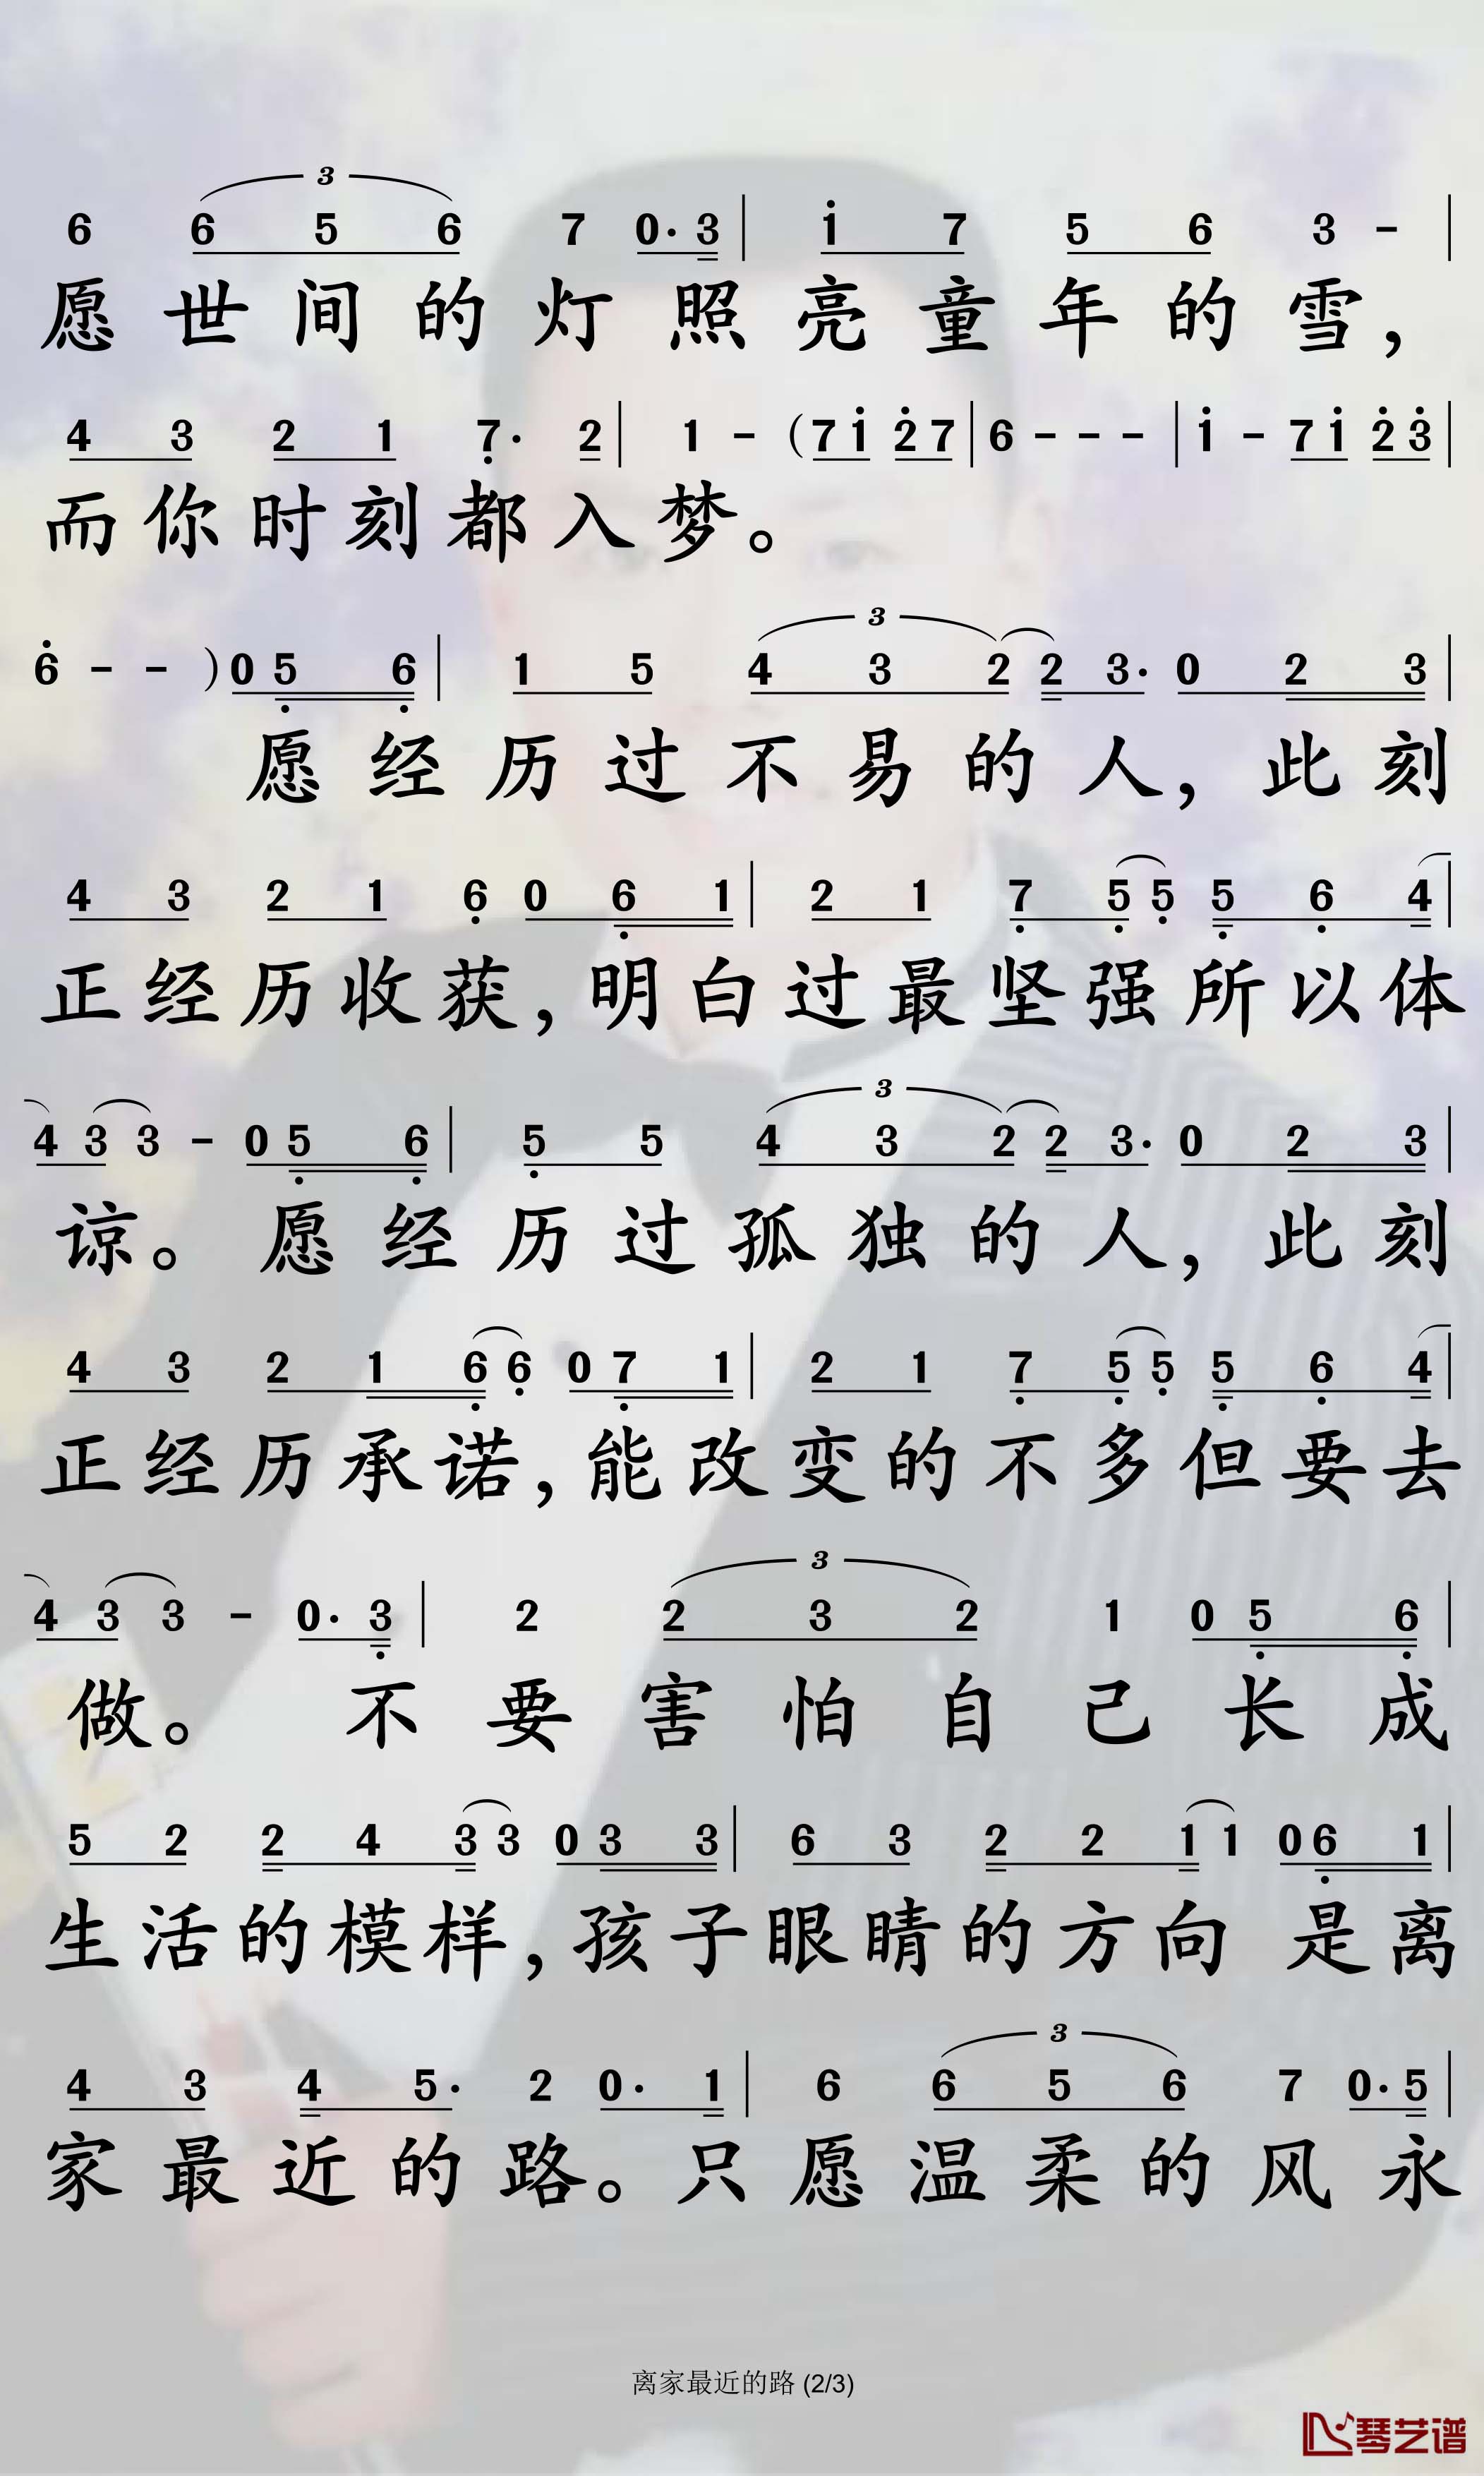 3
6 6 5 6 7 0· 3 | i 7 5 6 3 - |
愿世间的灯照亮童年的雪，
4 3 2 1 7· 2 | 1 - ( 7 i 2 7 | 6 - - - | i - 7 i 2 3 |
而你时刻都入梦。
3
6 - - ) 0 5 6 | 1 5 4 3 2 2 3· 0 2 3 |
愿经历过不易的人，此刻
4 3 2 1 6 0 6 1 | 2 1 7 5 5 5 6 4 |
正经历收获，明白过最坚强所以体
3
4 3 3 - 0 5 6 | 5 5 4 3 2 2 3· 0 2 3 |
谅。愿经历过孤独的人，此刻
4 3 2 1 6 6 0 7 1 | 2 1 7 5 5 5 6 4 |
正经历承诺，能改变的不多但要去
3
4 3 3 - 0· 3 | 2 2 3 2 1 0 5 6 |
做。不要害怕自己长成
5 2 2 4 3 3 0 3 3 | 6 3 2 2 1 1 0 6 1 |
生活的模样，孩子眼睛的方向 是离
3
4 3 4 5· 2 0· 1 | 6 6 5 6 7 0· 5 |
家最近的路。只愿温柔的风永
离家最近的路 (2/3)
琴艺谱